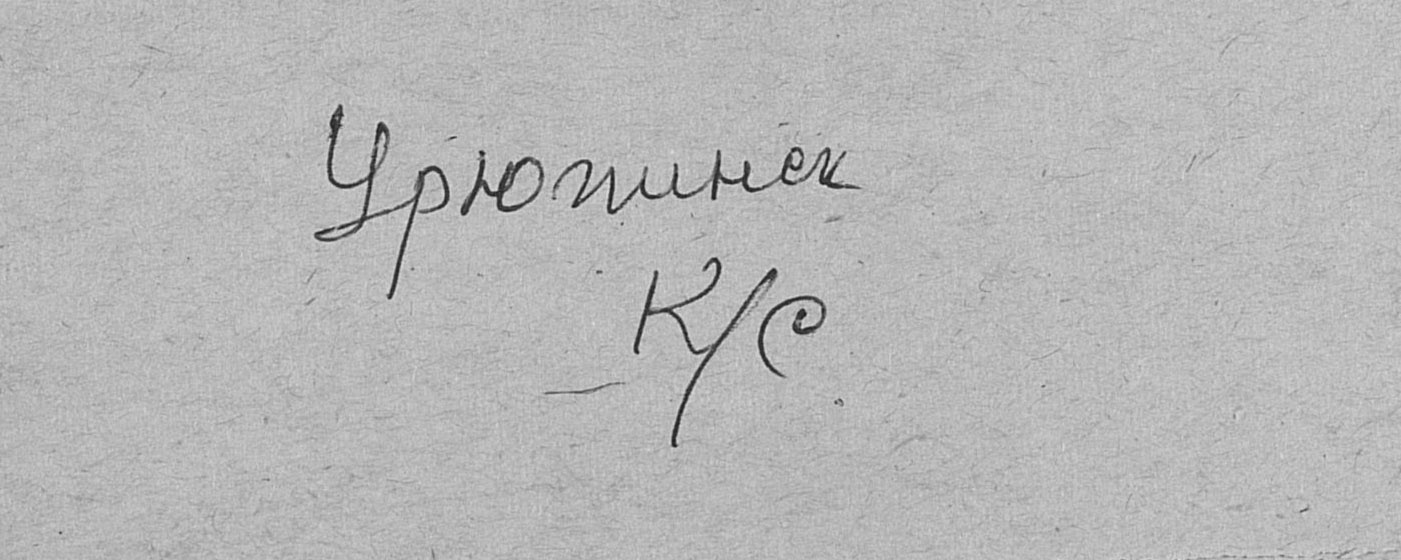 Урюпинск
К/С